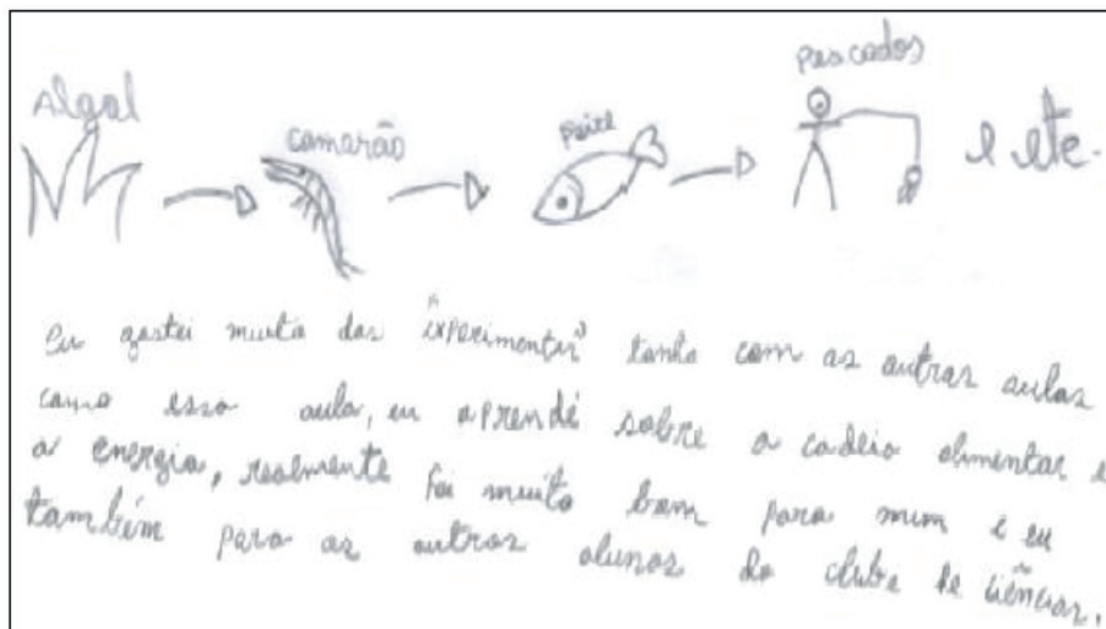 Algal
camarão
peixe
pescados
e etc.
Eu gostei muito das "experimentos" tanto com as outras aulas
como essa aula, eu aprendi sobre a cadeia alimentar e
a energia, realmente foi muito bom para mim e eu
também para as outras alunos do clube de ciências.